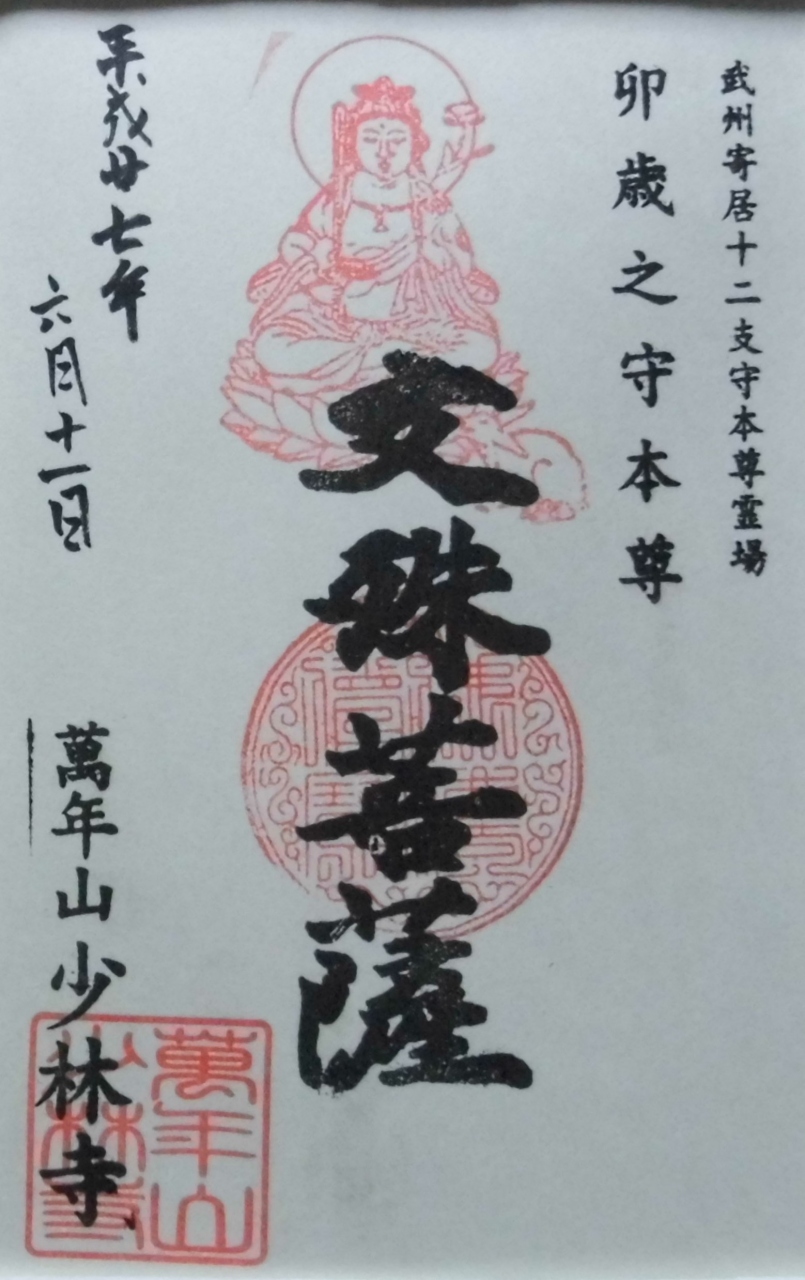 武州寄居十二支守本尊霊場
卯歳之守本尊
文殊菩薩
平成廿七年
六月十一日
萬年山少林寺
萬年山
少林寺